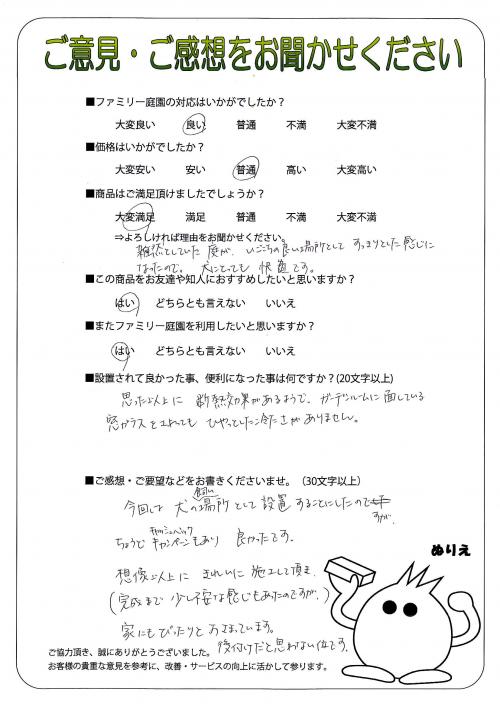 ご意見・ご感想をお聞かせください
■ファミリー庭園の対応はいかがでしたか？
大変良い 良い 普通 不満 大変不満
■価格はいかがでしたか？
大変安い 安い 普通 高い 大変高い
■商品はご満足頂けましたでしょうか？
大変満足 満足 普通 不満 大変不満
⇒よろしければ理由をお聞かせください。
雑然としていた庭が、いごこちの良い場所としてすっきりとした感じに
なったので。犬にとっても快適です。
■この商品をお友達や知人におすすめしたいと思いますか？
はい どちらとも言えない いいえ
■またファミリー庭園を利用したいと思いますか？
はい どちらとも言えない いいえ
■設置されて良かった事、便利になった事は何ですか？(20文字以上)
思った以上に断熱効果があるようで、ガーデンルームに面している
窓ガラスをさわってもひやっとした冷たさがありません。
■ご感想・ご要望などをお書きくださいませ。（30文字以上）
今回は犬の飼い場所として設置することにしたのですが、
ちょうどキャッシュバックキャンペーンもあり良かったです。
想像以上にきれいに施工して頂き、
(完成まで少し不安な感じもあったのですが、)
家にもぴったりとおさまっています。
後付けだと思わない位です。
ぬりえ
ご協力頂き、誠にありがとうございました。
お客様の貴重な意見を参考に、改善・サービスの向上に活かして参ります。